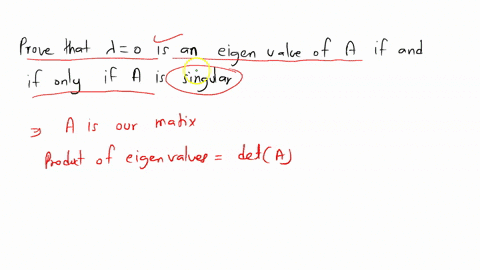 Prove that λ=0 is an eigen value of A if and
if only if A is singular
⇒ A is our matix
Product of eigenvalues = det(A)